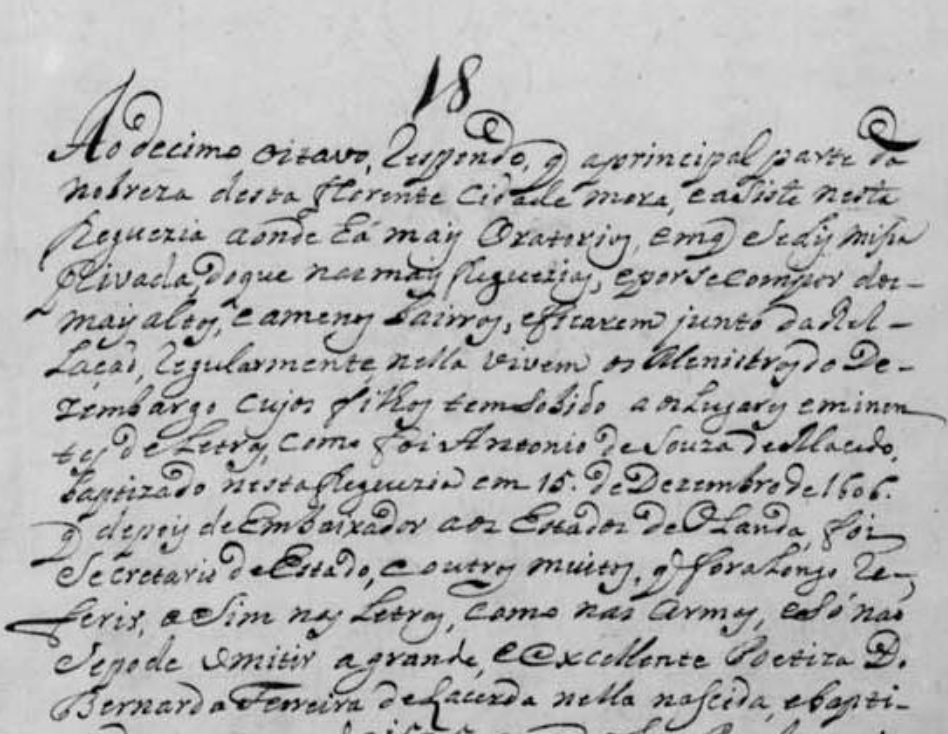 18
Ao decimo oitavo, Respondo, q̃ a principal parte da
nobreza desta florente Cidade mora, e asiste nesta
freguezia aonde há mays Oratorios, em q̃ se dis missa
privada, do que nas mays freguezias, e por se compor dos
mays altos, e amenos bairros, e ficarem junto da Rel-
laçaõ, regularmente nella vivem os Menistros do De-
zembargo cujos filhos tem sobido aos lugares eminen
tes de Letras, como foi Antonio de Souza de Macedo,
baptizado nesta freguezia em 15. de Dezembro de 1606.
q̃ depois de Embaixador aos Estados de Olanda, foi
Secretario de Estado, e outros muitos, q̃ fora longo re-
ferir, asim nas Letras, como nas Armas, e só naõ
se pode omitir a grande, e excellente Poetiza D.
Bernarda Ferreira de Lacerda nella nascida, e bapti-